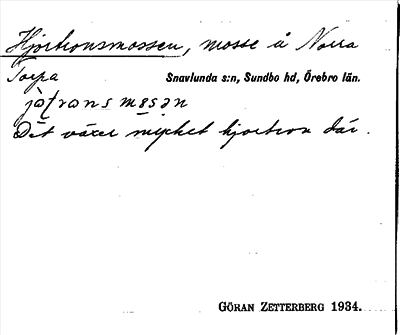 Hjortronsmossen, mosse å Norra
Torpa Snavlunda s:n, Sundbo hd, Örebro län.
Det växer mycket hjortron där.
GÖRAN ZETTERBERG 1934.